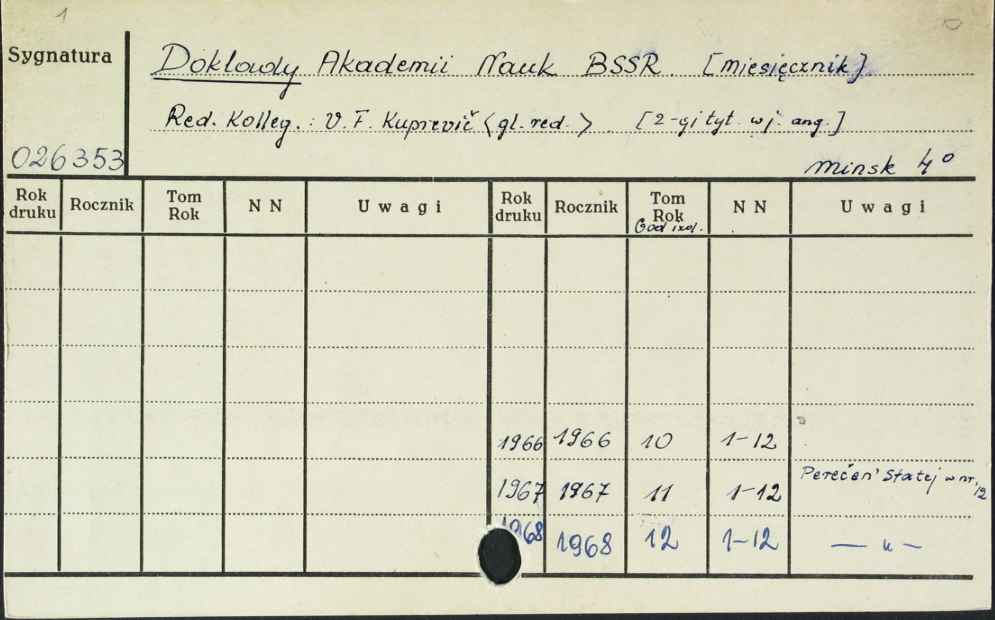 1
Sygnatura
Doklady Akademii Nauk BSSR. [miesięcznik]
Red. Kolleg.: V. F. Kuprevič <gl. red.> [2-gi tyt. w j. ang.]
026353
Minsk 4°
Rok druku Rocznik Tom Rok N N Uwagi Rok druku Rocznik Tom Rok N N Uwagi
God izd.
1966 1966 10 1-12
1967 1967 11 1-12 Perečen' Statej w nr. 12
1968 1968 12 1-12 — " —